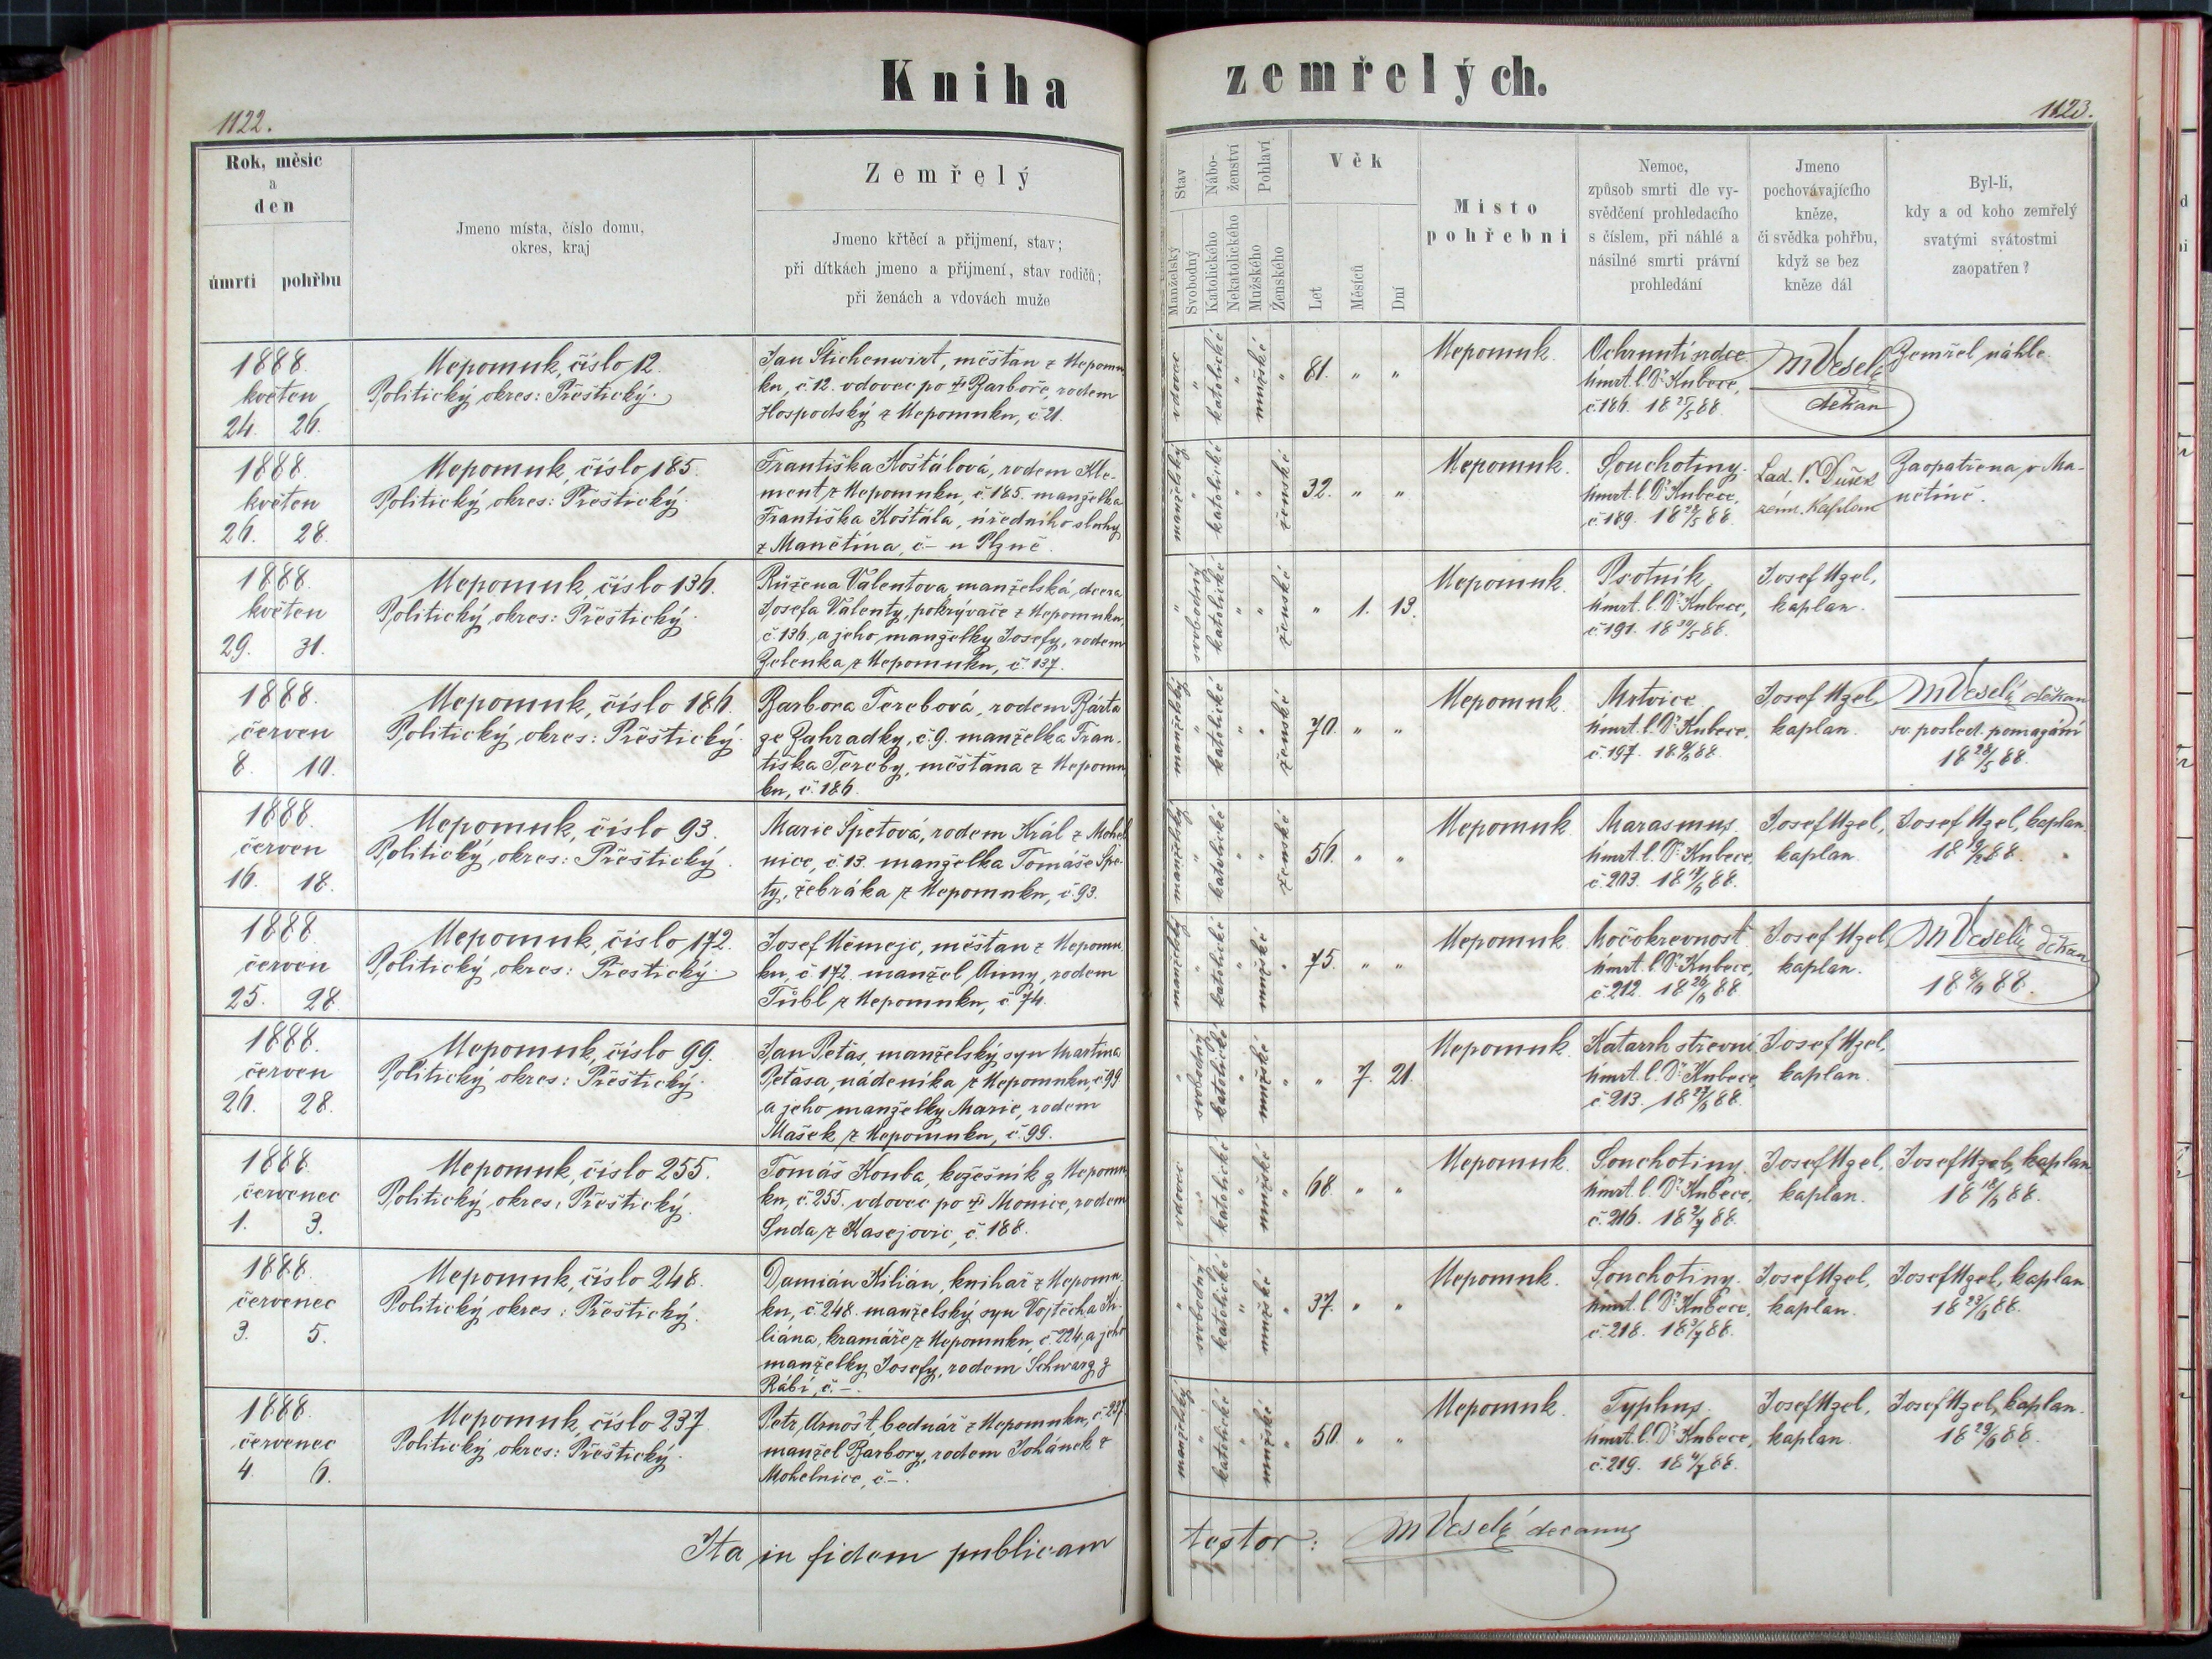 Kniha zemřelých.
1122.
1123.
Rok, měsíc
a
den
úmrtí pohřbu
Jmeno místa, číslo domu,
okres, kraj
Zemřelý
Jmeno křtěcí a přijmení, stav;
při dítkách jmeno a přijmení, stav rodičů;
při ženách a vdovách muže
Stav
Manželský
Svobodný
Nábo-
ženství
Katolického
Nekatolického
Pohlaví
Mužského
Ženského
Věk
Let
Měsíců
Dní
Místo
pohřební
Nemoc,
způsob smrti dle vy-
svědčení prohledacího
s číslem, při náhlé a
násilné smrti právní
prohledání
Jmeno
pochovávajícího
kněze,
či svědka pohřbu,
když se bez
kněze dál
Byl-li,
kdy a od koho zemřelý
svatými svátostmi
zaopatřen?
1888.
květen
24. 26.
Nepomuk, číslo 12.
Politický okres: Přeštický.
Jan Štichenwirt, měšťan z Nepomu-
ku, č. 12. vdovec po † Barboře, rodem
Hospodský z Nepomuku, č. 21.
vdovec " katolické " mužské "
81. " "
Nepomuk.
Ochrnutí srdce
úmrt. l. Dr Kubece,
č. 186. 18 25/5 88.
MVeselý
děkan
Zemřel náhle.
1888.
květen
26. 28.
Nepomuk, číslo 185.
Politický okres: Přeštický.
Františka Košťálová, rodem Kle-
ment z Nepomuku, č. 185. manželka
Františka Košťála, úředního sluhy
z Manětína, č – u Plzně.
manželský " katolické " " ženské
32. " "
Nepomuk.
Souchotiny.
úmrt. l. Dr Kubece,
č. 189. 18 28/5 88.
Lad. V. Dušek
zám. kaplan
Zaopatřena v Ma-
nětíně.
1888.
květen
29. 31.
Nepomuk, číslo 136.
Politický okres: Přeštický.
Růžena Valentova, manželská dcera
Josefa Valenty, pokrývače z Nepomuku,
č. 136. a jeho manželky Josefy, rodem
Zelenka z Nepomuku, č. 137.
" svobodný katolické " " ženské
" 1. 13.
Nepomuk.
Psotník
úmrt. l. Dr Kubece,
č. 191. 18 30/5 88.
Josef Uzel,
kaplan.
1888.
červen
8. 10.
Nepomuk, číslo 186.
Politický okres: Přeštický.
Barbora Terebová, rodem Bárta
ze Zahradky, č. 9. manželka Fran-
tiška Tereby, měšťana z Nepomu-
ku, č. 186.
manželský " katolické " " ženské
70. " "
Nepomuk.
Mrtvice
úmrt. l. Dr Kubece,
č. 197. 18 9/6 88.
Josef Uzel
kaplan.
MVeselý děkan
sv. posled. pomazání
18 28/5 88.
1888.
červen
16. 18.
Nepomuk, číslo 93.
Politický okres: Přeštický.
Marie Špetová, rodem Král z Mohel-
nice, č. 13. manželka Tomáše Špe-
ty, žebráka z Nepomuku, č. 93.
manželský " katolické " " ženské
56. " "
Nepomuk.
Marasmus.
úmrt. l. Dr Kubece,
č. 203. 18 17/6 88.
Josef Uzel,
kaplan.
Josef Uzel, kaplan.
1888.
červen
25. 28.
Nepomuk, číslo 172.
Politický okres: Přeštický.
Josef Němejc, měšťan z Nepomu-
ku, č. 172. manžel Anny, rodem
Tůbl z Nepomuku, č. 74.
manželský " katolické " mužské "
75. " "
Nepomuk.
Močokrevnost
úmrt. l. Dr Kubece,
č. 212. 18 26/6 88.
Josef Uzel
kaplan.
MVeselý děkan
1888.
červen
26. 28.
Nepomuk, číslo 99.
Politický okres: Přeštický.
Jan Petás, manželský syn Martina
Petása, nádeníka z Nepomuku, č. 99
a jeho manželky Marie, rodem
Mašek z Nepomuku, č. 99.
" svobodný katolické " mužské "
" 7. 21.
Nepomuk.
Katarrh střevní
úmrt. l. Dr Kubece
č. 213. 18 27/6 88.
Josef Uzel,
kaplan.
1888.
červenec
1. 3.
Nepomuk, číslo 255.
Politický okres: Přeštický.
Tomáš Kouba, kožešník z Nepomu-
ku, č. 255. vdovec po † Monice, rodem
Suda z Kasejovic, č. 188.
vdovec " katolické " mužské "
68. " "
Nepomuk.
Souchotiny.
úmrt. l. Dr Kubece,
č. 216. 18 2/7 88.
Josef Uzel,
kaplan.
Josef Uzel, kaplan
18 18/6 88.
1888.
červenec
3. 5.
Nepomuk, číslo 248.
Politický okres: Přeštický.
Damián Kilián, knihař z Nepomu-
ku, č. 248. manželský syn Vojtěcha Ki-
liána, kramáře z Nepomuku, č. 224. a jeho
manželky Josefy, rodem Schwarz z
Rábí, č. –.
" svobodný katolické " mužské "
37. " "
Nepomuk.
Souchotiny.
úmrt. l. Dr Kubece,
č. 218. 18 3/7 88.
Josef Uzel,
kaplan.
Josef Uzel, kaplan
18 23/6 88.
1888.
červenec
4. 6.
Nepomuk, číslo 237
Politický okres: Přeštický.
Petr Arnošt, bednář z Nepomuku, č. 237.
manžel Barbory, rodem Johánek z
Mohelnice, č –.
manželský " katolické " mužské "
50. " "
Nepomuk.
Typhus.
úmrt. l. Dr Kubece,
č. 219. 18 4/7 88.
Josef Uzel,
kaplan.
Josef Uzel, kaplan.
18 29/6 88.
Ita in fidem publicam
testor: MVeselý decanus